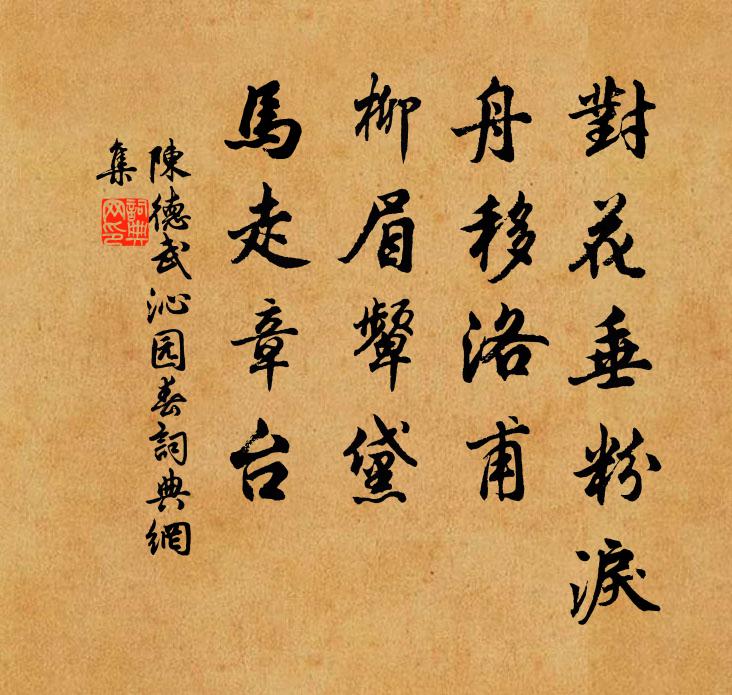 對花垂粉淚
舟移洛甫
柳眉顰黛
馬走章台
陳德武沁园春詞典網
集
詞典网印